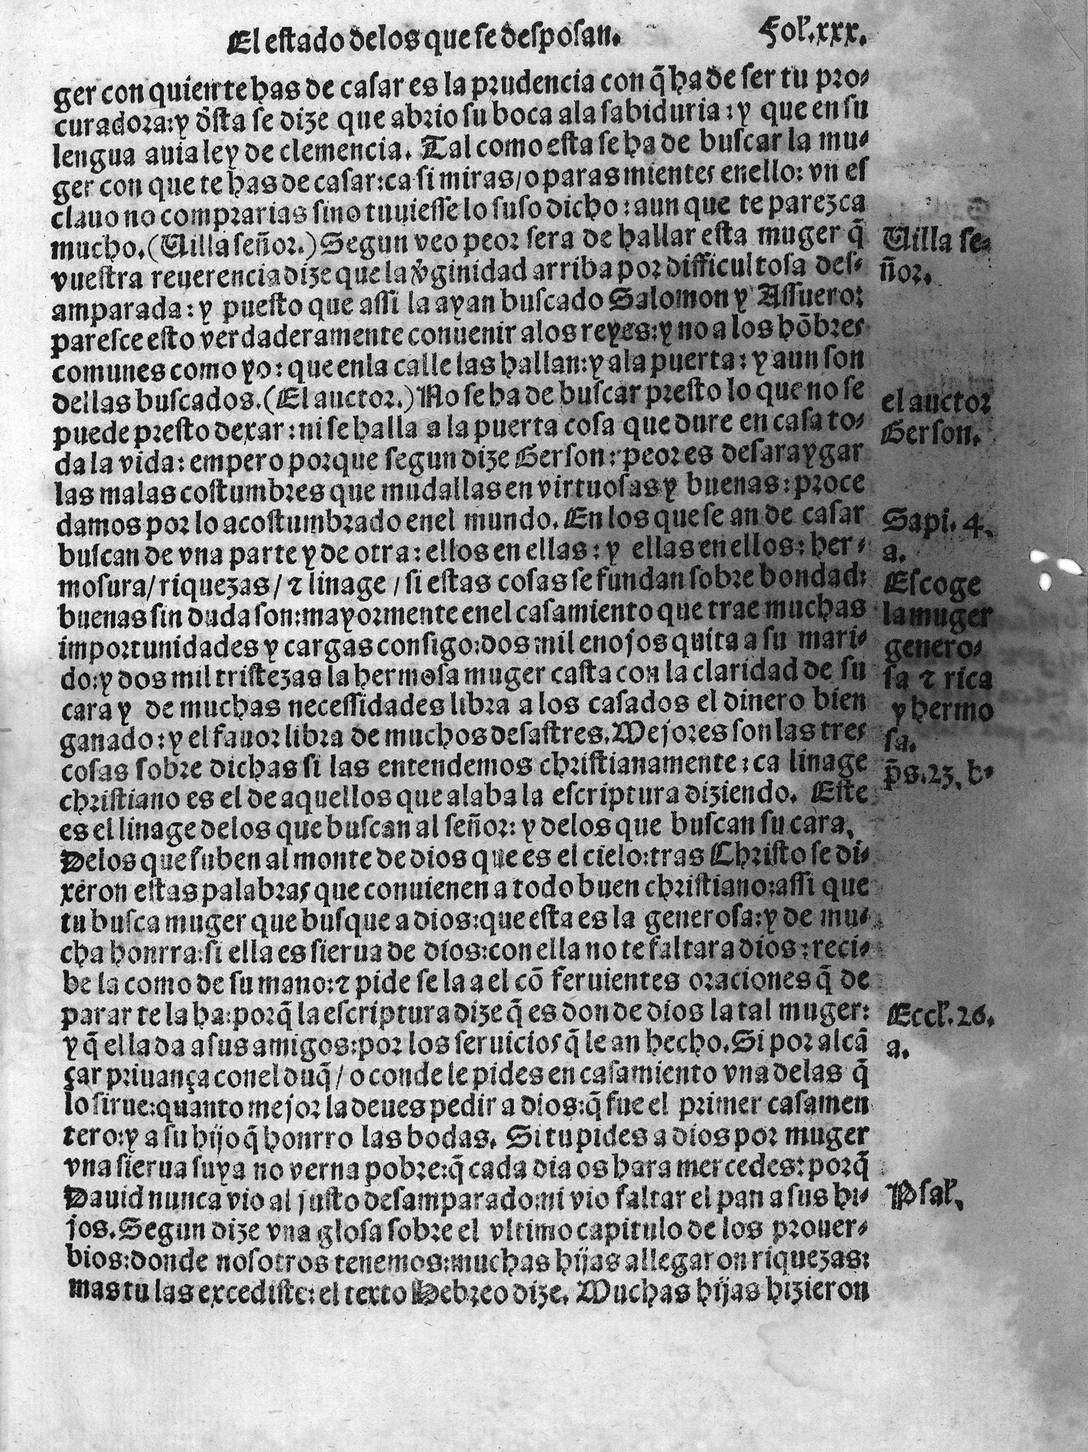 El estado delos que se desposan. Fol.xxx.
ger con quien te has de casar es la prudencia con q̃ ha de ser tu pro-
curadora: y d̃sta se dize que abrio su boca ala sabiduria: y que en su
lengua auia ley de clemencia. Tal como esta se ha de buscar la mu-
ger con que te has de casar: ca si miras / o paras mientes en ello: vn es
clauo no comprarias sino tuuiesse lo suso dicho: aun que te parezca
mucho. (Uilla señor.) Segun veo peor sera de hallar esta muger q̃
vuestra reuerencia dize que la v̉ginidad arriba por difficultosa des-
amparada: y puesto que assi la ayan buscado Salomon y Assuero:
paresce esto verdaderamente conuenir alos reyes: y no a los hõbres
comunes como yo: que enla calle las hallan: y ala puerta: y aun son
dellas buscados. (El auctor.) No se ha de buscar presto lo que no se
puede presto dexar: ni se halla a la puerta cosa que dure en casa to-
da la vida: empero porque segun dize Gerson: peor es desaraygar
las malas costumbres que mudallas en virtuosas y buenas: proce
damos por lo acostumbrado enel mundo. En los que se an de casar
buscan de vna parte y de otra: ellos en ellas: y ellas en ellos: her-
mosura / riquezas / ⁊ linage / si estas cosas se fundan sobre bondad:
buenas sin duda son: mayormente enel casamiento que trae muchas
importunidades y cargas consigo: dos mil enojos quita a su mari-
do: y dos mil tristezas la hermosa muger casta con la claridad de su
cara y de muchas necessidades libra a los casados el dinero bien
ganado: y el fauor libra de muchos desastres. Mejores son las tres
cosas sobre dichas si las entendemos christianamente: ca linage
christiano es el de aquellos que alaba la escriptura diziendo. Este
es el linage delos que buscan al señor: y delos que buscan su cara.
Delos que suben al monte de dios que es el cielo: tras Christo se di-
xeron estas palabras que conuienen a todo buen christiano: assi que
tu busca muger que busque a dios: que esta es la generosa: y de mu-
cha honrra: si ella es sierua de dios: con ella no te faltara dios: reci-
be la como de su mano: ⁊ pide se la a el cõ feruientes oraciones q̃ de
parar te la ha: porq̃ la escriptura dize q̃ es don de dios la tal muger:
y q̃ ella da a sus amigos: por los seruicios q̃ le an hecho. Si por alcã
çar priuança con el duq̃ / o conde le pides en casamiento vna delas q̃
lo sirue: quanto mejor la deues pedir a dios: q̃ fue el primer casamen
tero: y a su hijo q̃ honrro las bodas. Si tu pides a dios por muger
vna sierua suya no verna pobre: q̃ cada dia os hara mercedes: porq̃
Dauid nunca vio al justo desamparado: ni vio faltar el pan a sus hi-
jos. Segun dize vna glosa sobre el vltimo capitulo de los prouer-
bios: donde nosotros tenemos: muchas hijas allegaron riquezas:
mas tu las excediste: el texto Hebreo dize. Muchas hijas hizieron
Uilla se-
ñor.
el auctor
Gerson.
Sapi. 4.
a.
Escoge
la muger
genero-
sa ⁊ rica
y hermo
sa.
p̃s. 23. b.
Eccl'. 26.
a.
Psal'.